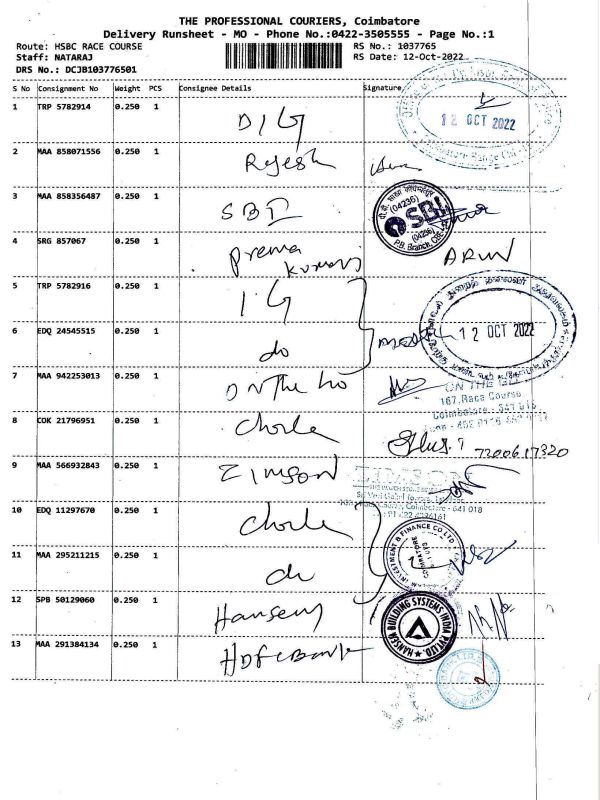 THE PROFESSIONAL COURIERS, Coimbatore
Delivery Runsheet - MO - Phone No.:0422-3505555 - Page No.:1
Route: HSBC RACE COURSE RS No.: 1037765
Staff: NATARAJ RS Date: 12-Oct-2022
DRS No.: DCJB103776501
S No Consignment No Weight PCS Consignee Details Signature
1 TRP 5782914 0.250 1 DIG
12 OCT 2022
2 MAA 858071556 0.250 1 Rajesh
3 MAA 858356487 0.250 1 SBI
(04236) SBI (04236) P.B. Branch, CBE
4 SRG 857067 0.250 1 Prema Kumari ARUN
5 TRP 5782916 0.250 1 IG
12 OCT 2022
6 EDQ 24545515 0.250 1 do
7 MAA 942253013 0.250 1 On The Go
ON THE GO
167, Race Course
Coimbatore - 641 018
8 COK 21796951 0.250 1 Chola
7200617320
9 MAA 566932843 0.250 1 ZIMSON
ZIMSON
Coimbatore - 641 018
10 EDQ 11297670 0.250 1 Chola
INVESTMENT & FINANCE CO LTD
11 MAA 295211215 0.250 1 do
12 SPB 50129060 0.250 1 Hansen
HANSEN BUILDING SYSTEMS INDIA PVT LTD.
13 MAA 291384134 0.250 1 HDFC Bank